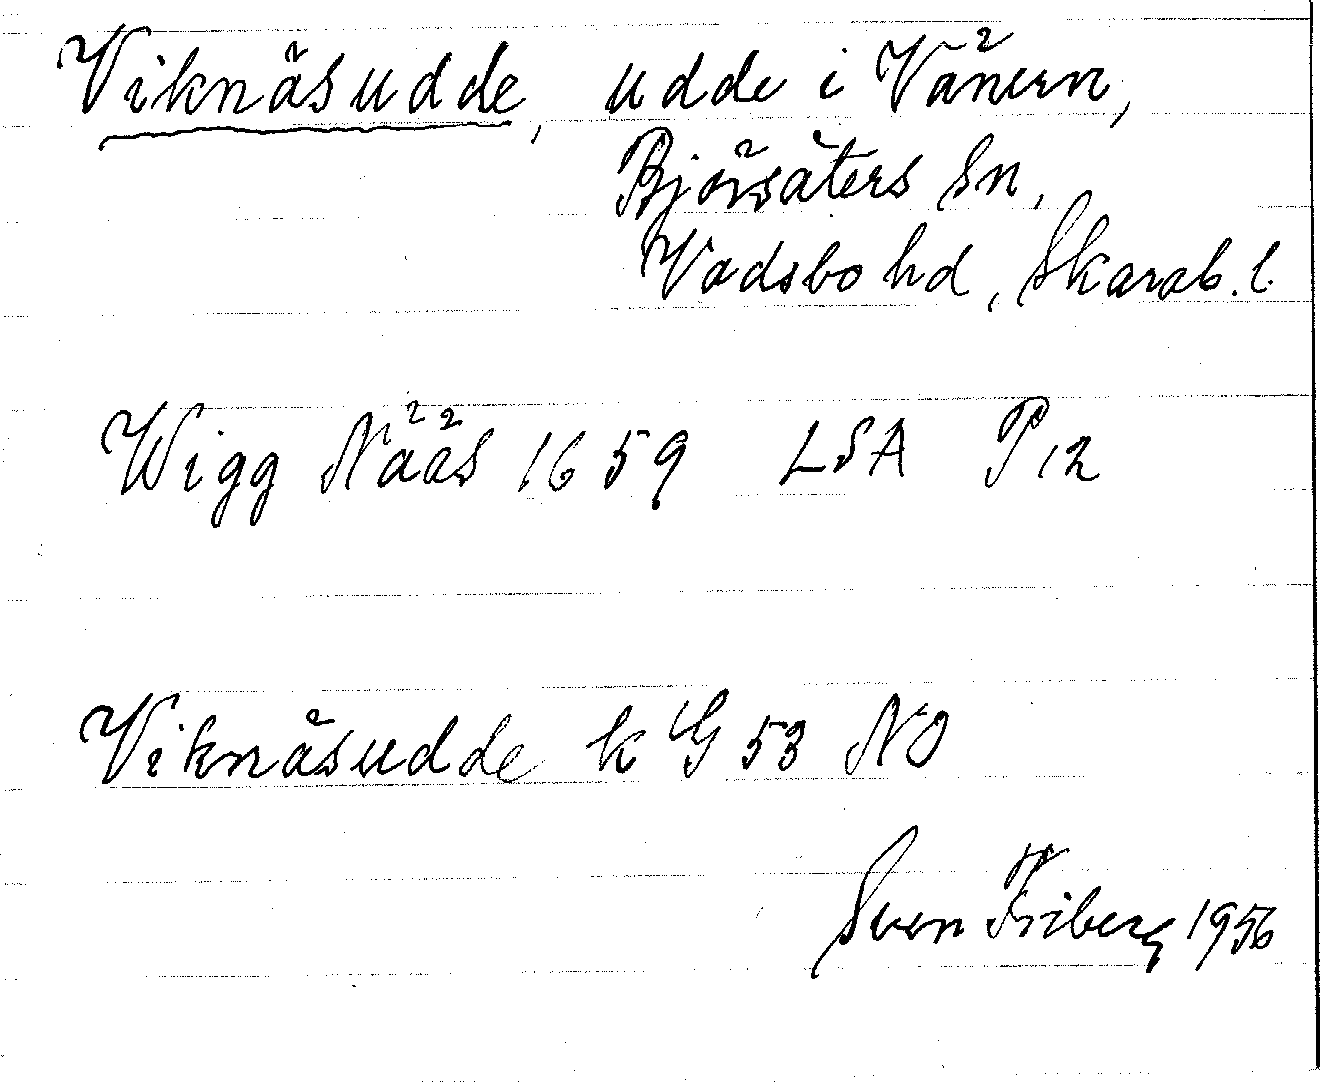 Viknäsudde, udde i Vänern,
Björsäters sn,
Vadsbo hd, Skarab. l.
Wigg Nääs 1659 LSA P12
Viknäsudde k G 53 NO
Sven Friberg 1956